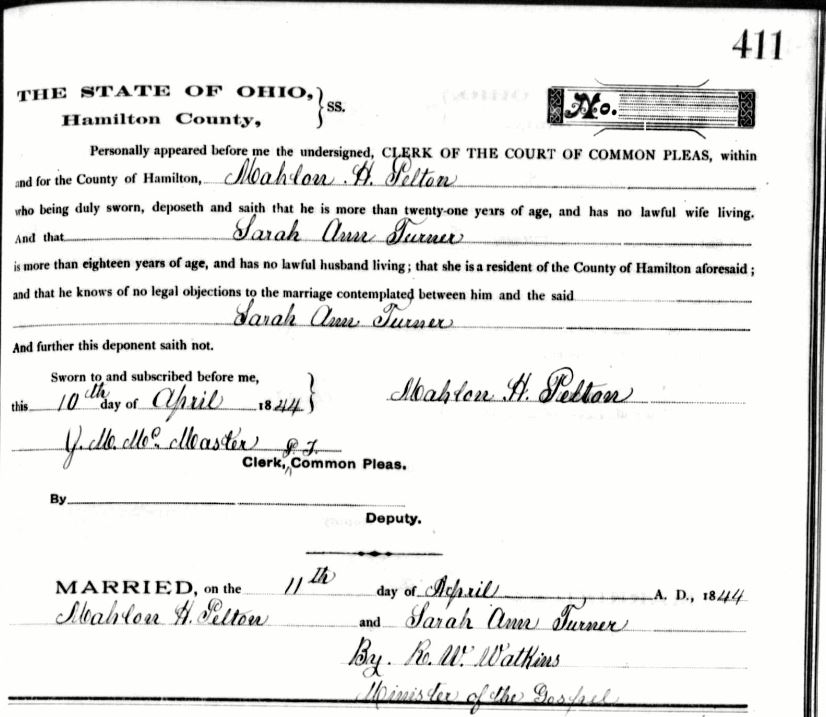 411
THE STATE OF OHIO, } ss.
Hamilton County,
No.
Personally appeared before me the undersigned, CLERK OF THE COURT OF COMMON PLEAS, within
and for the County of Hamilton, Mahlon H. Pelton
who being duly sworn, deposeth and saith that he is more than twenty-one years of age, and has no lawful wife living.
And that Sarah Ann Turner
is more than eighteen years of age, and has no lawful husband living; that she is a resident of the County of Hamilton aforesaid;
and that he knows of no legal objections to the marriage contemplated between him and the said
Sarah Ann Turner
And further this deponent saith not.
Sworn to and subscribed before me,
this 10th day of April 1844 } Mahlon H. Pelton
M. Mc. Master
Clerk, Common Pleas.
By
Deputy.
MARRIED, on the 11th day of April, A. D., 1844
Mahlon H. Pelton and Sarah Ann Turner
By. R. W. Watkins
Minister of the Gospel